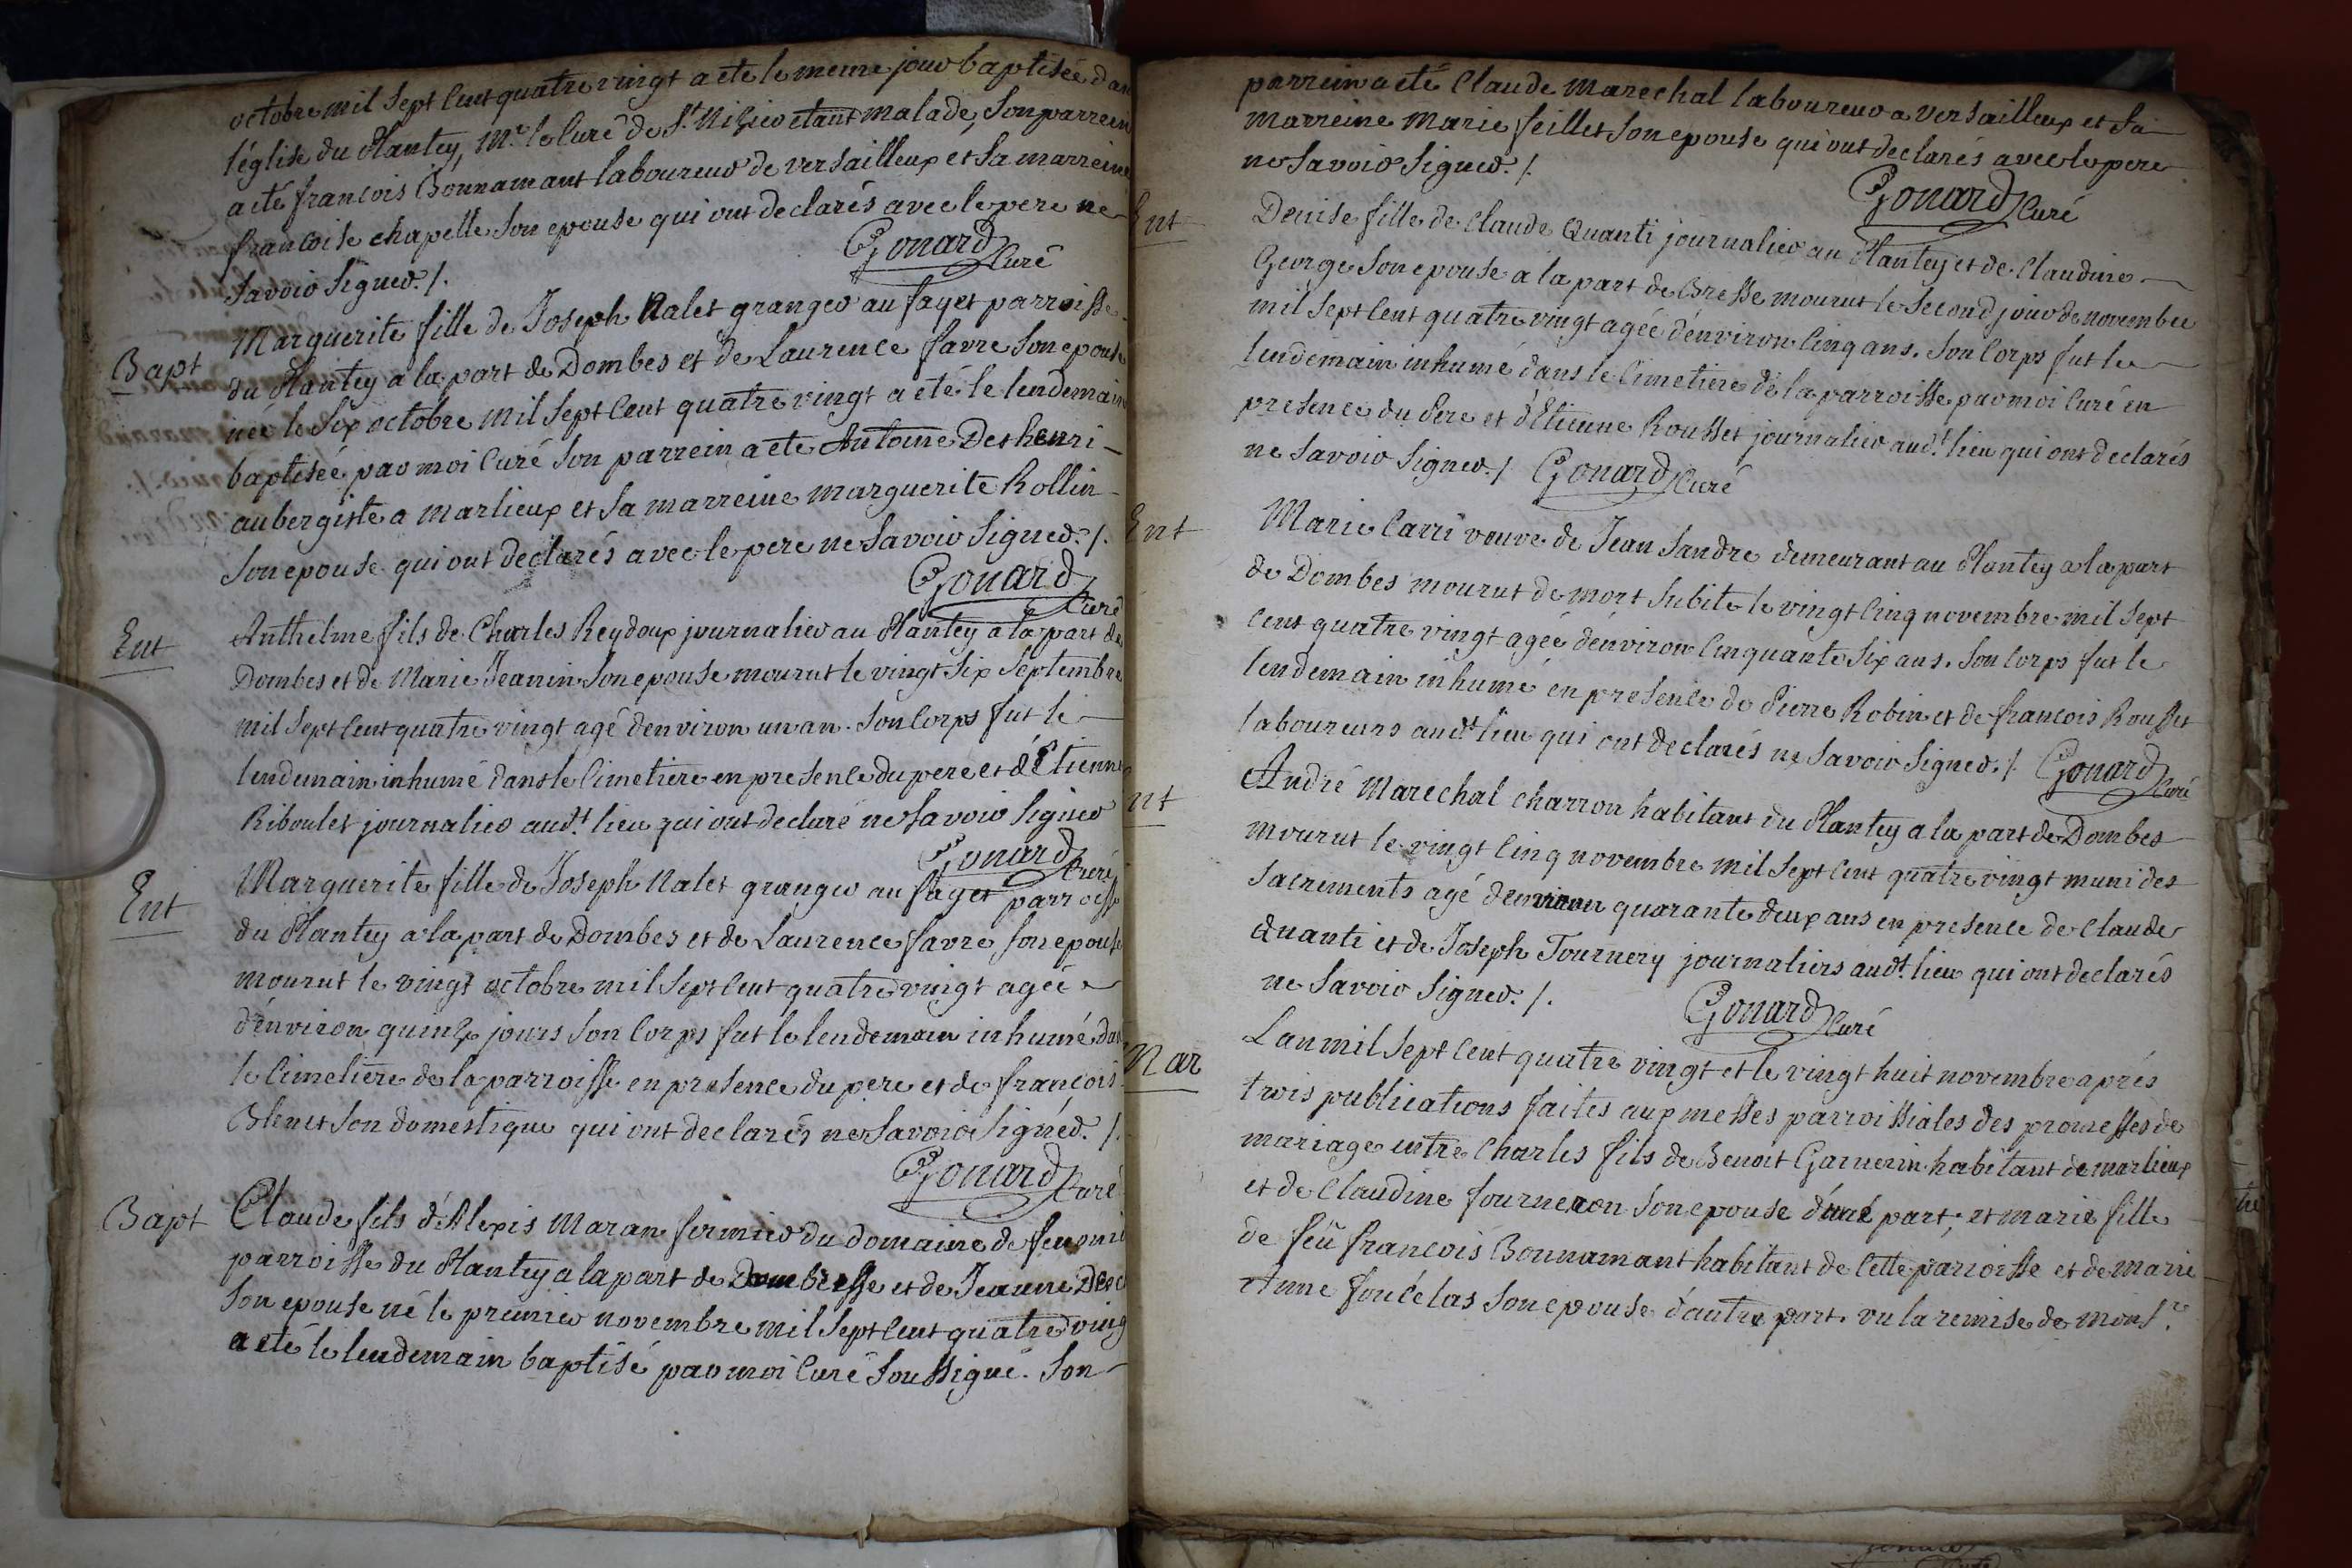 octobre mil sept cent quatre vingt a ete le meme jour baptisée dan
l'églisé du Plantey, Mr. le Curé de St. Nizier etant malade, Son parrein
a eté francois Bonnamant laboureur de versailleux et sa marreine
francoise chapelle son epouse qui ont declarés avec le pere ne
savoir signer. /.
Gonard Curé
Bapt
Marguerite fille de Joseph Nalet granger au fayet parroisse
du Plantey a la part de Dombes et de Laurence favre son epouse
née le six octobre mil sept cent quatre vingt a eté le lendemain
baptisée par moi Curé son parrein a eté Antoine Deshenri
aubergiste a marlieux et sa marreine marguerite Rollin
son epouse qui ont declarés avec le pere ne savoir signer. /.
Gonard Curé
Ent
Anthelme fils de Charles Reydoux journalier au Plantey a la part de
Dombes et de Marie Jeanin son epouse mourut le vingt six septembre
mil sept cent quatre vingt agé d'environ un an. Son corps fut le
lendemain inhumé dans le cimetiere en presence du pere et d'Etienne
Riboulet journalier audt. lieu qui ont declaré ne savoir signer
Gonard Curé
Ent
Marguerite fille de Joseph Nalet granger au fayet parroisse
du Plantey a la part de Dombes et de Laurence favre son epouse
mourut le vingt octobre mil sept cent quatre vingt agée
d'environ quinze jours son corps fut le lendemain inhumé dans
le cimetiere de la parroisse en presence du pere et de françois
Blenet son domestique qui ont declarés ne savoir signér. /.
Gonard Curé
Bapt
Claude fils d'Alexis Maran fermier du domaine de
parroisse du Plantey a la part de et de Jeanne
son epouse né le premier novembre mil sept cent quatre ving
a eté le lendemain baptisé par moi Curé soussigné. Son
parrein a eté Claude Marechal laboureur a versailleux et sa
marreine Marie feillet son epouse qui ont declarés avec le pere
ne savoir signer. /.
Gonard Curé
Ent
Denise fille de Claude Quanti journalier au Plantey et de Claudine
George son epouse a la part de Bresse mourut le second jour de novembre
mil sept cent quatre vingt agée d'environ cinq ans. Son corps fut le
lendemain inhumé dans le cimetiere de la parroisse par moi Curé en
presence du Pere et d'Etienne Rousset journalier audt. lieu qui ont declarés
ne savoir signer. / Gonard Curé
Ent
Marie Carri veuve de Jean Sandre demeurant au Plantey a la part
de Dombes mourut de mort subite le vingt cinq novembre mil sept
cent quatre vingt agée d'environ cinquante six ans. Son corps fut le
lendemain inhumé en presence de Pierre Robin et de francois Rousset
laboureurs audt. lieu qui ont declarés ne savoir signer. /. Gonard Curé
nt
André Marechal charron habitant du Plantey a la part de Dombes
mourut le vingt cinq novembre mil sept cent quatre vingt muni des
sacrements agé d'environ quarante deux ans en presence de Claude
Quanti et de Joseph Tournery journaliers audt. lieu qui ont declarés
ne savoir signer. /.
Gonard Curé
Mar
L'an mil sept cent quatre vingt et le vingt huit novembre aprés
trois publications faites aux messes parroissiales des promesses de
mariage entre Charles fils de Benoit Garnerin habitant de marlieux
et de Claudine fourneron son epouse d'une part; et marie fille
de feu francois Bonnamant habitant de cette parroisse et de marie
Anne foucélas son epouse d'autre part. vu la remise de monsr.